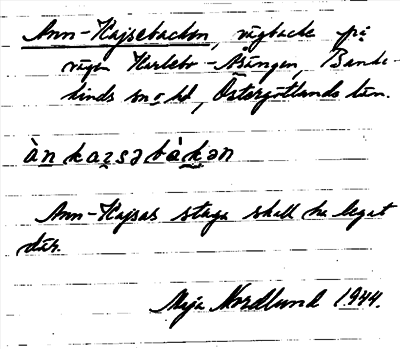 Ann-Kajsebacken, vägbacke på
vägen Karlsbr-Åsungen, Banke-
kinds sn o hd, Östergötlands län.
ànkaɪsəbàkən
Ann-Kajsas stuga skall ha legat
där.
Maja Nordlund 1944.